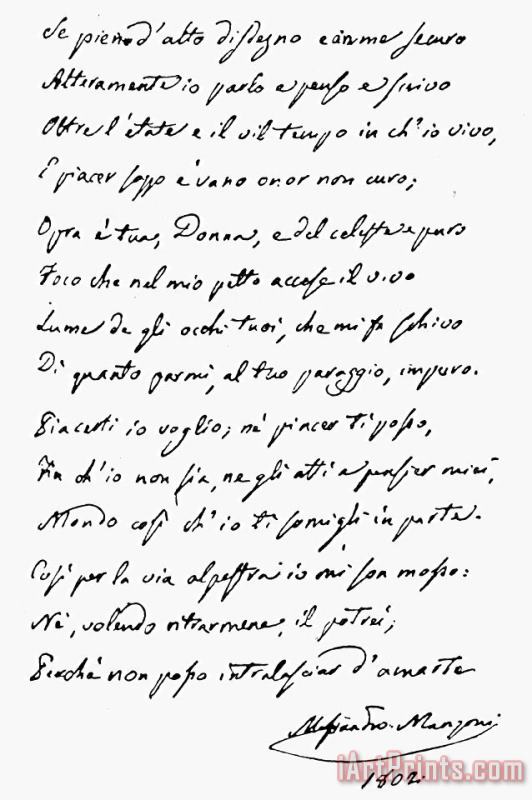 Se pien d'alto disdegno e in me securo
Alteramente io parlo e penso e scrivo
Oltre l'etate e il vil tempo in ch'io vivo,
E piacer sozzo e vano onor non curo;
Opra è tua, Donna, e del celeste e puro
Foco che nel mio petto accese il vivo
Lume de gli occhi tuoi, che mi fa schivo
Di quanto parmi, al tuo paraggio, impuro.
Piacerti io voglio; nè piacer ti posso,
Fin ch'io non sia, ne gli atti e pensier miei,
Mondo così ch'io ti somigli in parte.
Così per la via alpestra io mi son mosso:
Nè, volendo ritrarmene, il potrei;
Perchè non posso intralasciar d'amarte
Alessandro Manzoni
1802.
iArtPrints.com